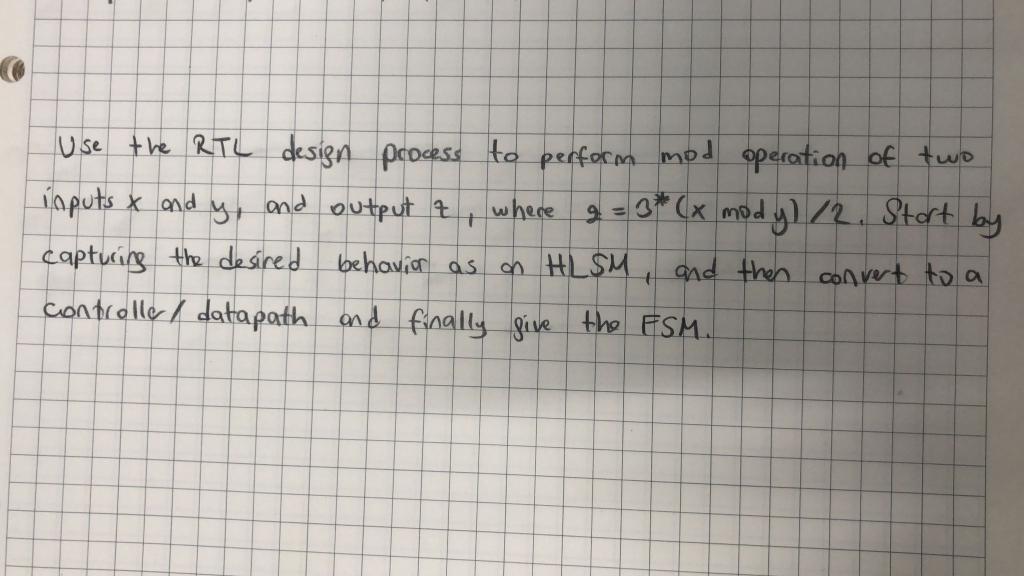 Use the RTL design process to perform mod operation of two
inputs x and y, and output z, where z = 3*(x mod y)/2. Start by
capturing the desired behavior as an HLSM, and then convert to a
controller/datapath and finally give the FSM.